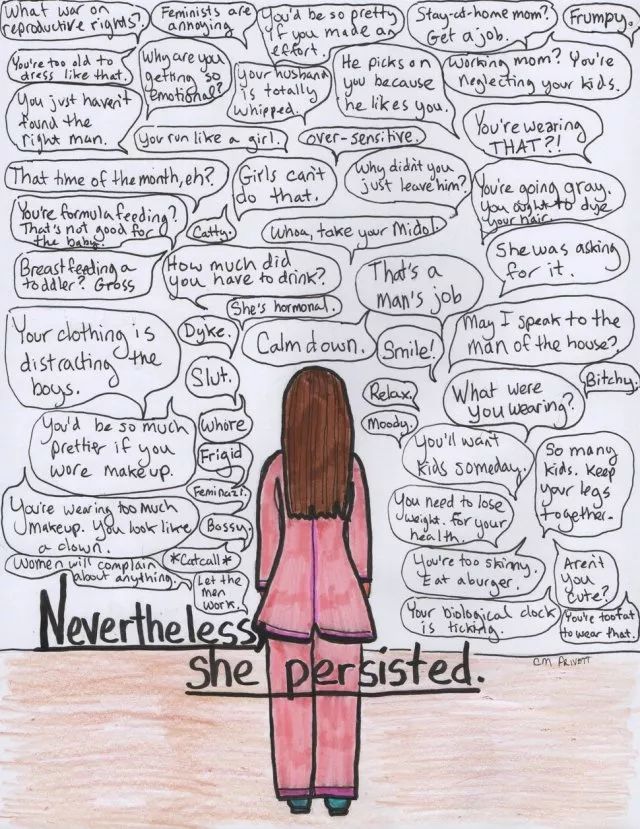 What war on
reproductive rights?
Feminists are
annoying
You'd be so pretty
if you made an
effort.
Stay-at-home mom?
Get a job.
Frumpy.
You're too old to
dress like that.
Why are you
getting so
emotional?
Your husband
is totally
whipped.
He picks on
you because
he likes you.
Working mom? You're
neglecting your kids.
You just haven't
found the
right man.
You run like a girl.
over-sensitive.
You're wearing
THAT?!
That time of the month, eh?
Girls can't
do that.
Why didn't you
just leave him?
You're going gray.
You ought to dye
your hair.
You're formula feeding?
That's not good for
the baby.
Catty.
Whoa, take your Midol.
She was asking
for it.
Breastfeeding a
toddler? Gross
How much did
you have to drink?
That's a
man's job
She's hormonal.
Your clothing is
distracting the
boys.
Dyke.
Calm down.
Smile!
May I speak to the
man of the house?
Slut.
Relax.
What were
you wearing?
Bitchy.
You'd be so much
prettier if you
wore makeup.
Whore
Moody.
Frigid
You'll want
kids someday.
So many
kids. Keep
your legs
together.
Feminazi.
You're wearing too much
makeup. You look like
a clown.
Bossy.
You need to lose
weight. For your
health.
Women will complain
about anything.
*Catcall*
You're too skinny.
Eat a burger.
Aren't
you
cute?
Let the
men
work.
Your biological clock
is ticking.
You're too fat
to wear that.
Nevertheless,
she persisted.
CM Privott